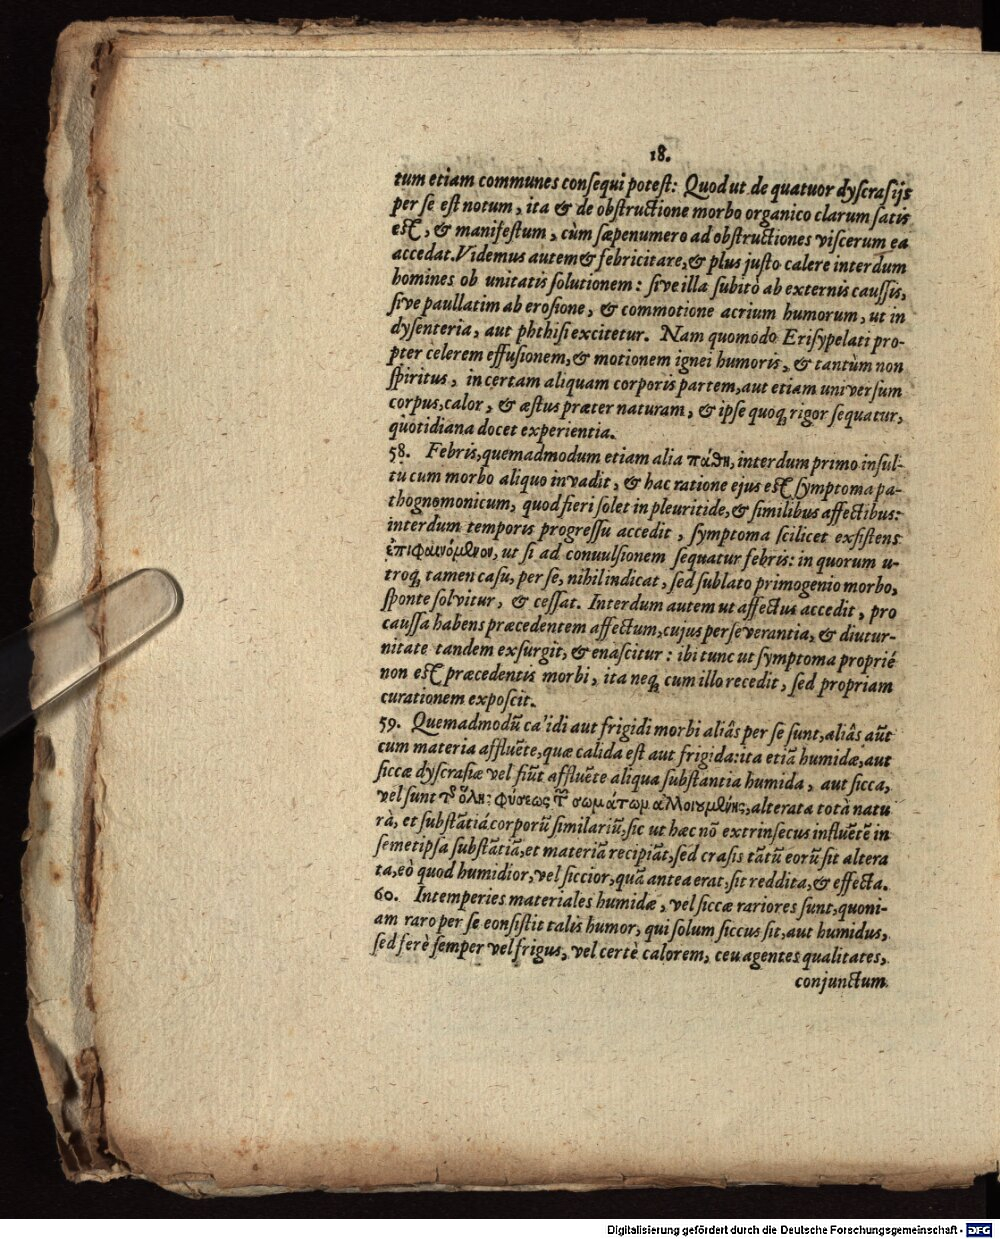 18.
tum etiam communes consequi potest: Quod ut de quatuor dyscrasijs
per se est notum, ita & de obstructione morbo organico clarum satis
est, & manifestum, cùm sæpenumero ad obstructiones viscerum ea
accedat. Videmus autem & febricitare, & plus justo calere interdum
homines ob unitatis solutionem: sive illa subitò ab externis caussis,
sive paullatim ab erosione, & commotione acrium humorum, ut in
dysenteria, aut phthisi excitetur. Nam quomodo Erisypelati pro-
pter celerem effusionem, & motionem ignei humoris, & tantùm non
spiritus, in certam aliquam corporis partem, aut etiam universum
corpus, calor, & æstus præter naturam, & ipse quoq; rigor sequatur,
quotidiana docet experientia.
58. Febris, quemadmodum etiam alia πάθη, interdum primo insul-
tu cum morbo aliquo invadit, & hac ratione ejus est symptoma pa-
thognomonicum, quod fieri solet in pleuritide, & similibus affectibus:
interdum temporis progressu accedit, symptoma scilicet exsistens
ἐπιφαινόμενον, ut si ad convulsionem sequatur febris: in quorum u-
troq; tamen casu, per se, nihil indicat, sed sublato primogenio morbo,
sponte solvitur, & cessat. Interdum autem ut affectus accedit, pro
caussa habens præcedentem affectum, cujus perseverantia, & diutur-
nitate tandem exsurgit, & enascitur: ibi tunc ut symptoma propriè
non est præcedentis morbi, ita neq; cum illo recedit, sed propriam
curationem exposcit.
59. Quemadmodũ ca'idi aut frigidi morbi aliâs per se sunt, aliâs aũt
cum materia affluẽte, quæ calida est aut frigida: ita etiã humidæ, aut
siccæ dyscrasiæ vel fiũt affluẽte aliqua substantia humida, aut sicca,
vel sunt τῆς ὅλης φύσεως τῶν σωμάτων ἀλλοιουμένης, alterata totâ natu
râ, et substãtiâ corporũ similariũ, sic ut hæc nõ extrinsecus influẽtẽ in
semetipsa substãtiã, et materiã recipiãt, sed crasis tãtũ eorũ sit altera
ta, eò quod humidior, vel siccior, quã antea erat, sit reddita, & effecta.
60. Intemperies materiales humidæ, vel siccæ rariores sunt, quoni-
am raro per se consistit talis humor, qui solum siccus sit, aut humidus,
sed ferè semper vel frigus, vel certè calorem, ceu agentes qualitates,
conjunctum
Digitalisierung gefördert durch die Deutsche Forschungsgemeinschaft - DFG